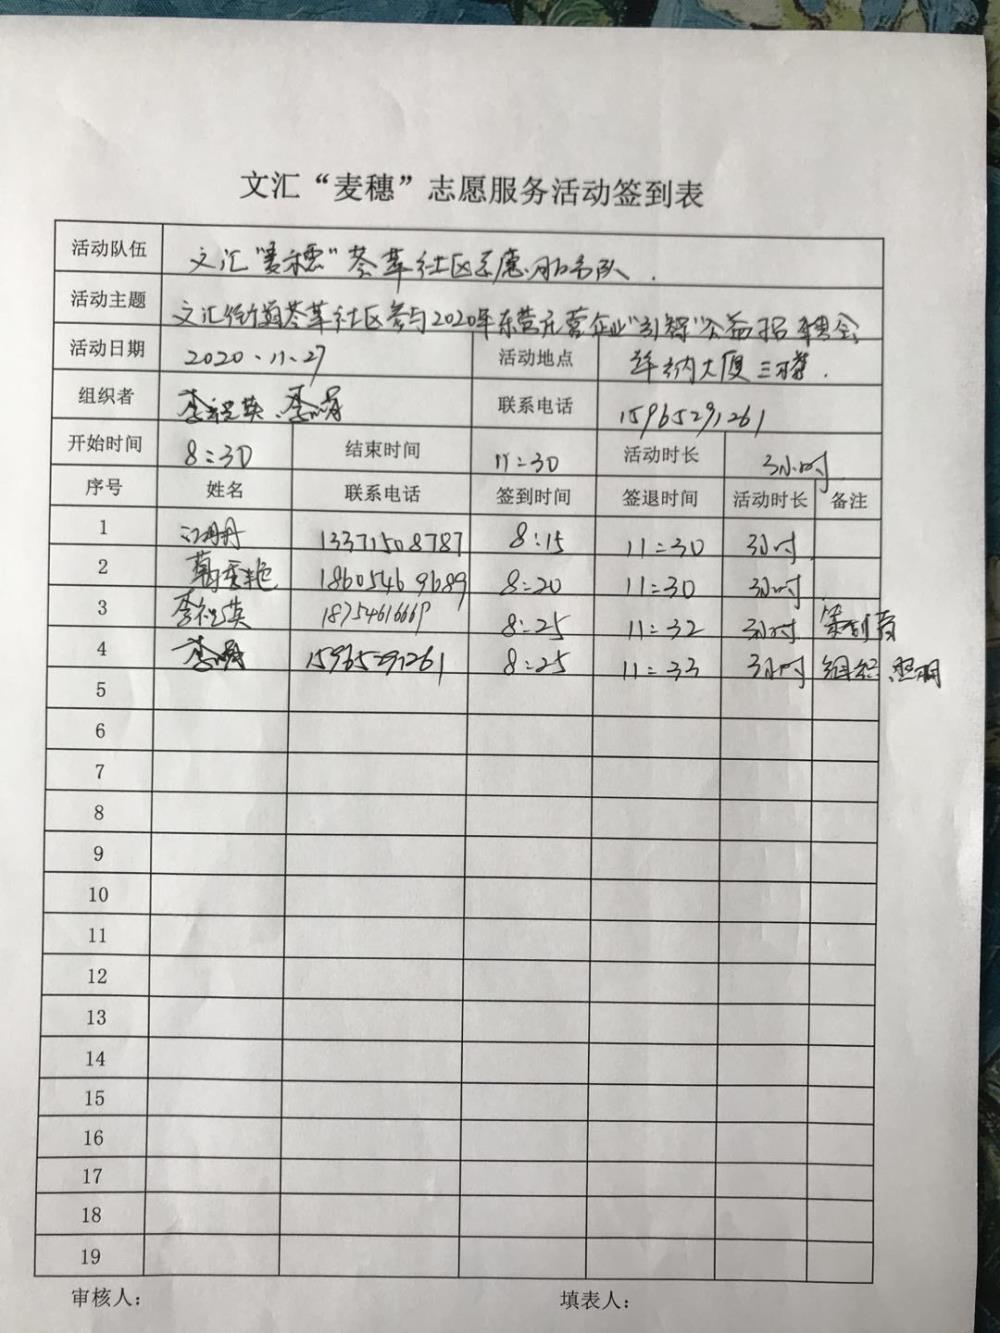 文汇“麦穗”志愿服务活动签到表
活动队伍 文汇“麦穗”荟萃社区志愿服务队.
活动主题 文汇街道荟萃社区参与2020年东营元营企业“引智”公益招聘会
活动日期 2020、11、27 活动地点 大厦三楼.
组织者 李祝英、李娟 联系电话 15965291261
开始时间 8:30 结束时间 11:30 活动时长 3小时
序号 姓名 联系电话 签到时间 签退时间 活动时长 备注
1 江丹丹 13371508787 8:15 11:30 3小时
2 18605469689 8:20 11:30 3小时
3 李祝英 18754616669 8:25 11:32 3小时 策划员
4 李娟 15965291261 8:25 11:33 3小时
5
6
7
8
9
10
11
12
13
14
15
16
17
18
19
审核人: 填表人: